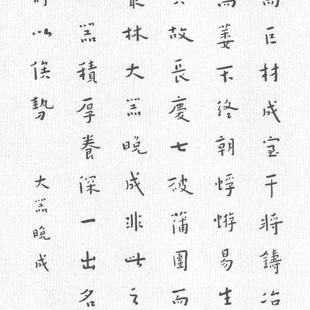 巨材成室干將鑄冶
萎不終朝蜉蝣易生
故長慶七破蒲團而
叢林大器晚成非此之
器積厚養深一出名
以俟勢
大器晚成